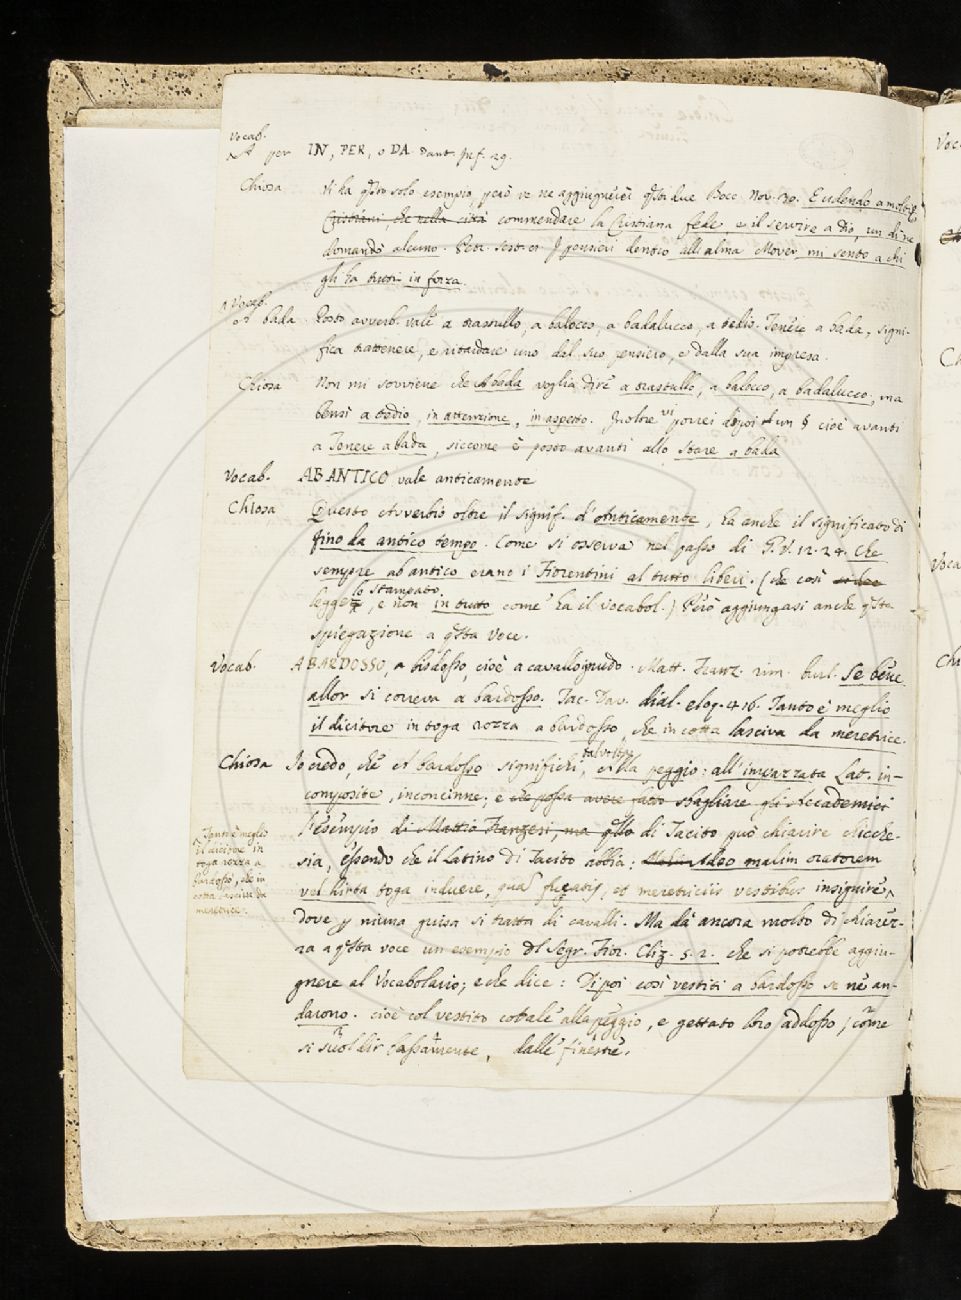 Vocab.
A per IN, PER, o DA. Dant. Inf. 29.
Chiosa V'ha questo solo esempio, però ve ne aggiugnerei questi due Bocc. Nov. 20. E udendo a molti
Cristiani, che nella città commendare la Cristiana fede e il servire a Dio, un dì ne
domandò alcuno. Petr. I pensieri dentro all'alma Mover mi sento a chi
gli ha tutti in forza.
Vocab.
A bada. Posto avverb. vale a trastullo, a balocco, a badalucco, a tedio. Tenere a bada, signi-
fica trattenere, e ritardare uno dal suo pensiero, e dalla sua impresa.
Chiosa Non mi sovviene che A bada voglia dire a trastullo, a balocco, a badalucco, ma
bensì a tedio, in attenzione, in aspetto. Inoltre vi porrei dipoi un § cioè avanti
a Tenere a bada, siccome è posto avanti allo Stare a bada
Vocab. AB ANTICO vale anticamente
Chiosa Questo Avverbio oltre il signif. d'Anticamente, ha anche il significato di
fino da antico tempo. Come si osserva nel passo di G. V. 12. 24. Che
sempre ab antico erano i Fiorentini al tutto liberi. (che così
lo stampato
legge, e non in tutto come ha il Vocabol.) Però aggiungasi anche questa
spiegazione a questa voce.
Vocab. A BARDOSSO, a bisdosso, cioè a cavallo gnudo. Matt. Franz. rim. burl. Se bene
allor si correva a bardosso. Tac. Dav. dial. eloq. 416. Tanto è meglio
il dicitore in toga rozza a bardosso, che in cotta lasciva da meretrice.
Chiosa Io credo, che A bardosso significhi, talvolta Alla peggio: all'impazzata Lat. in-
composite, inconcinne; e che possa avere fatto sbagliare gli Accademici
l'esempio di Mattio Franzesi, ma quello di Tacito può chiarire chicche-
sia, essendo che il Latino di Tacito abbia: Adeo malim oratorem
vel hirta toga induere, quam fucatis, et meretriciis vestibus insignire,
Tanto è meglio
il dicitore in
toga rozza a
bardosso, che in
cotta lasciva da
meretrice.
dove in niuna guisa si tratta di cavalli. Ma dà ancora molto di chiarez-
za a questa voce un esempio del Segr. Fior. Cliz. 5. 2. che si potrebbe aggiu-
gnere al Vocabolario; e che dice: Dipoi così vestiti a bardosso se ne an-
darono. cioè col vestito cotale alla peggio, e gettato loro addosso, come
si suol dir bassamente, dalle finestre.